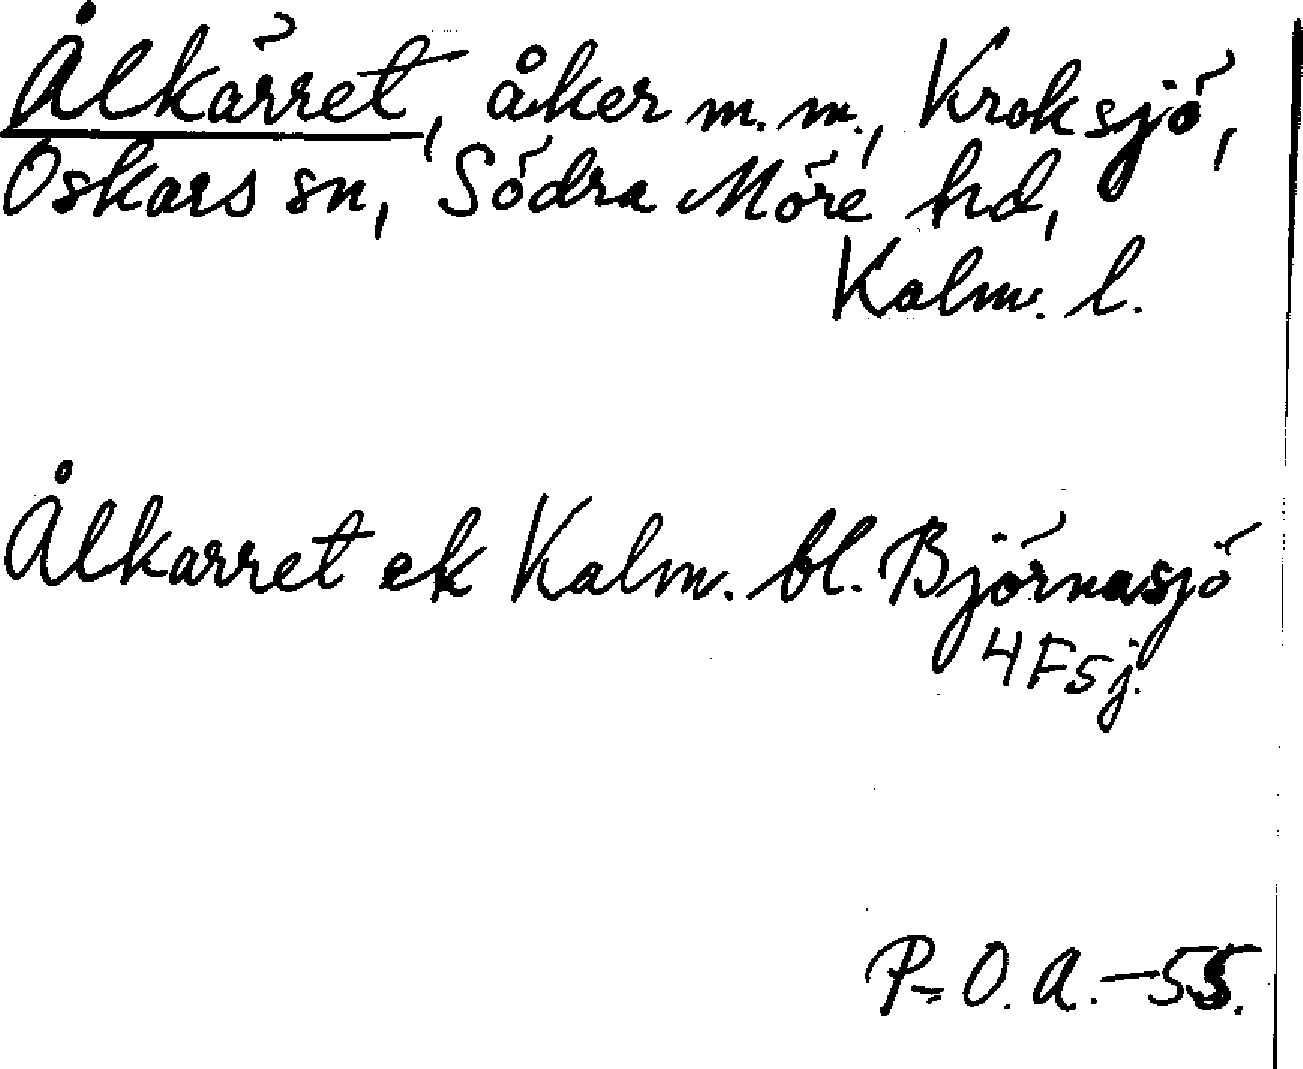 Ålkärret, åker m.m., Kroksjö,
Oskars sn, Södra Möre hd,
Kalm. l.
Ålkarret ek Kalm. bl. Björnasjö
4Fsj.
P-O.A.-55.